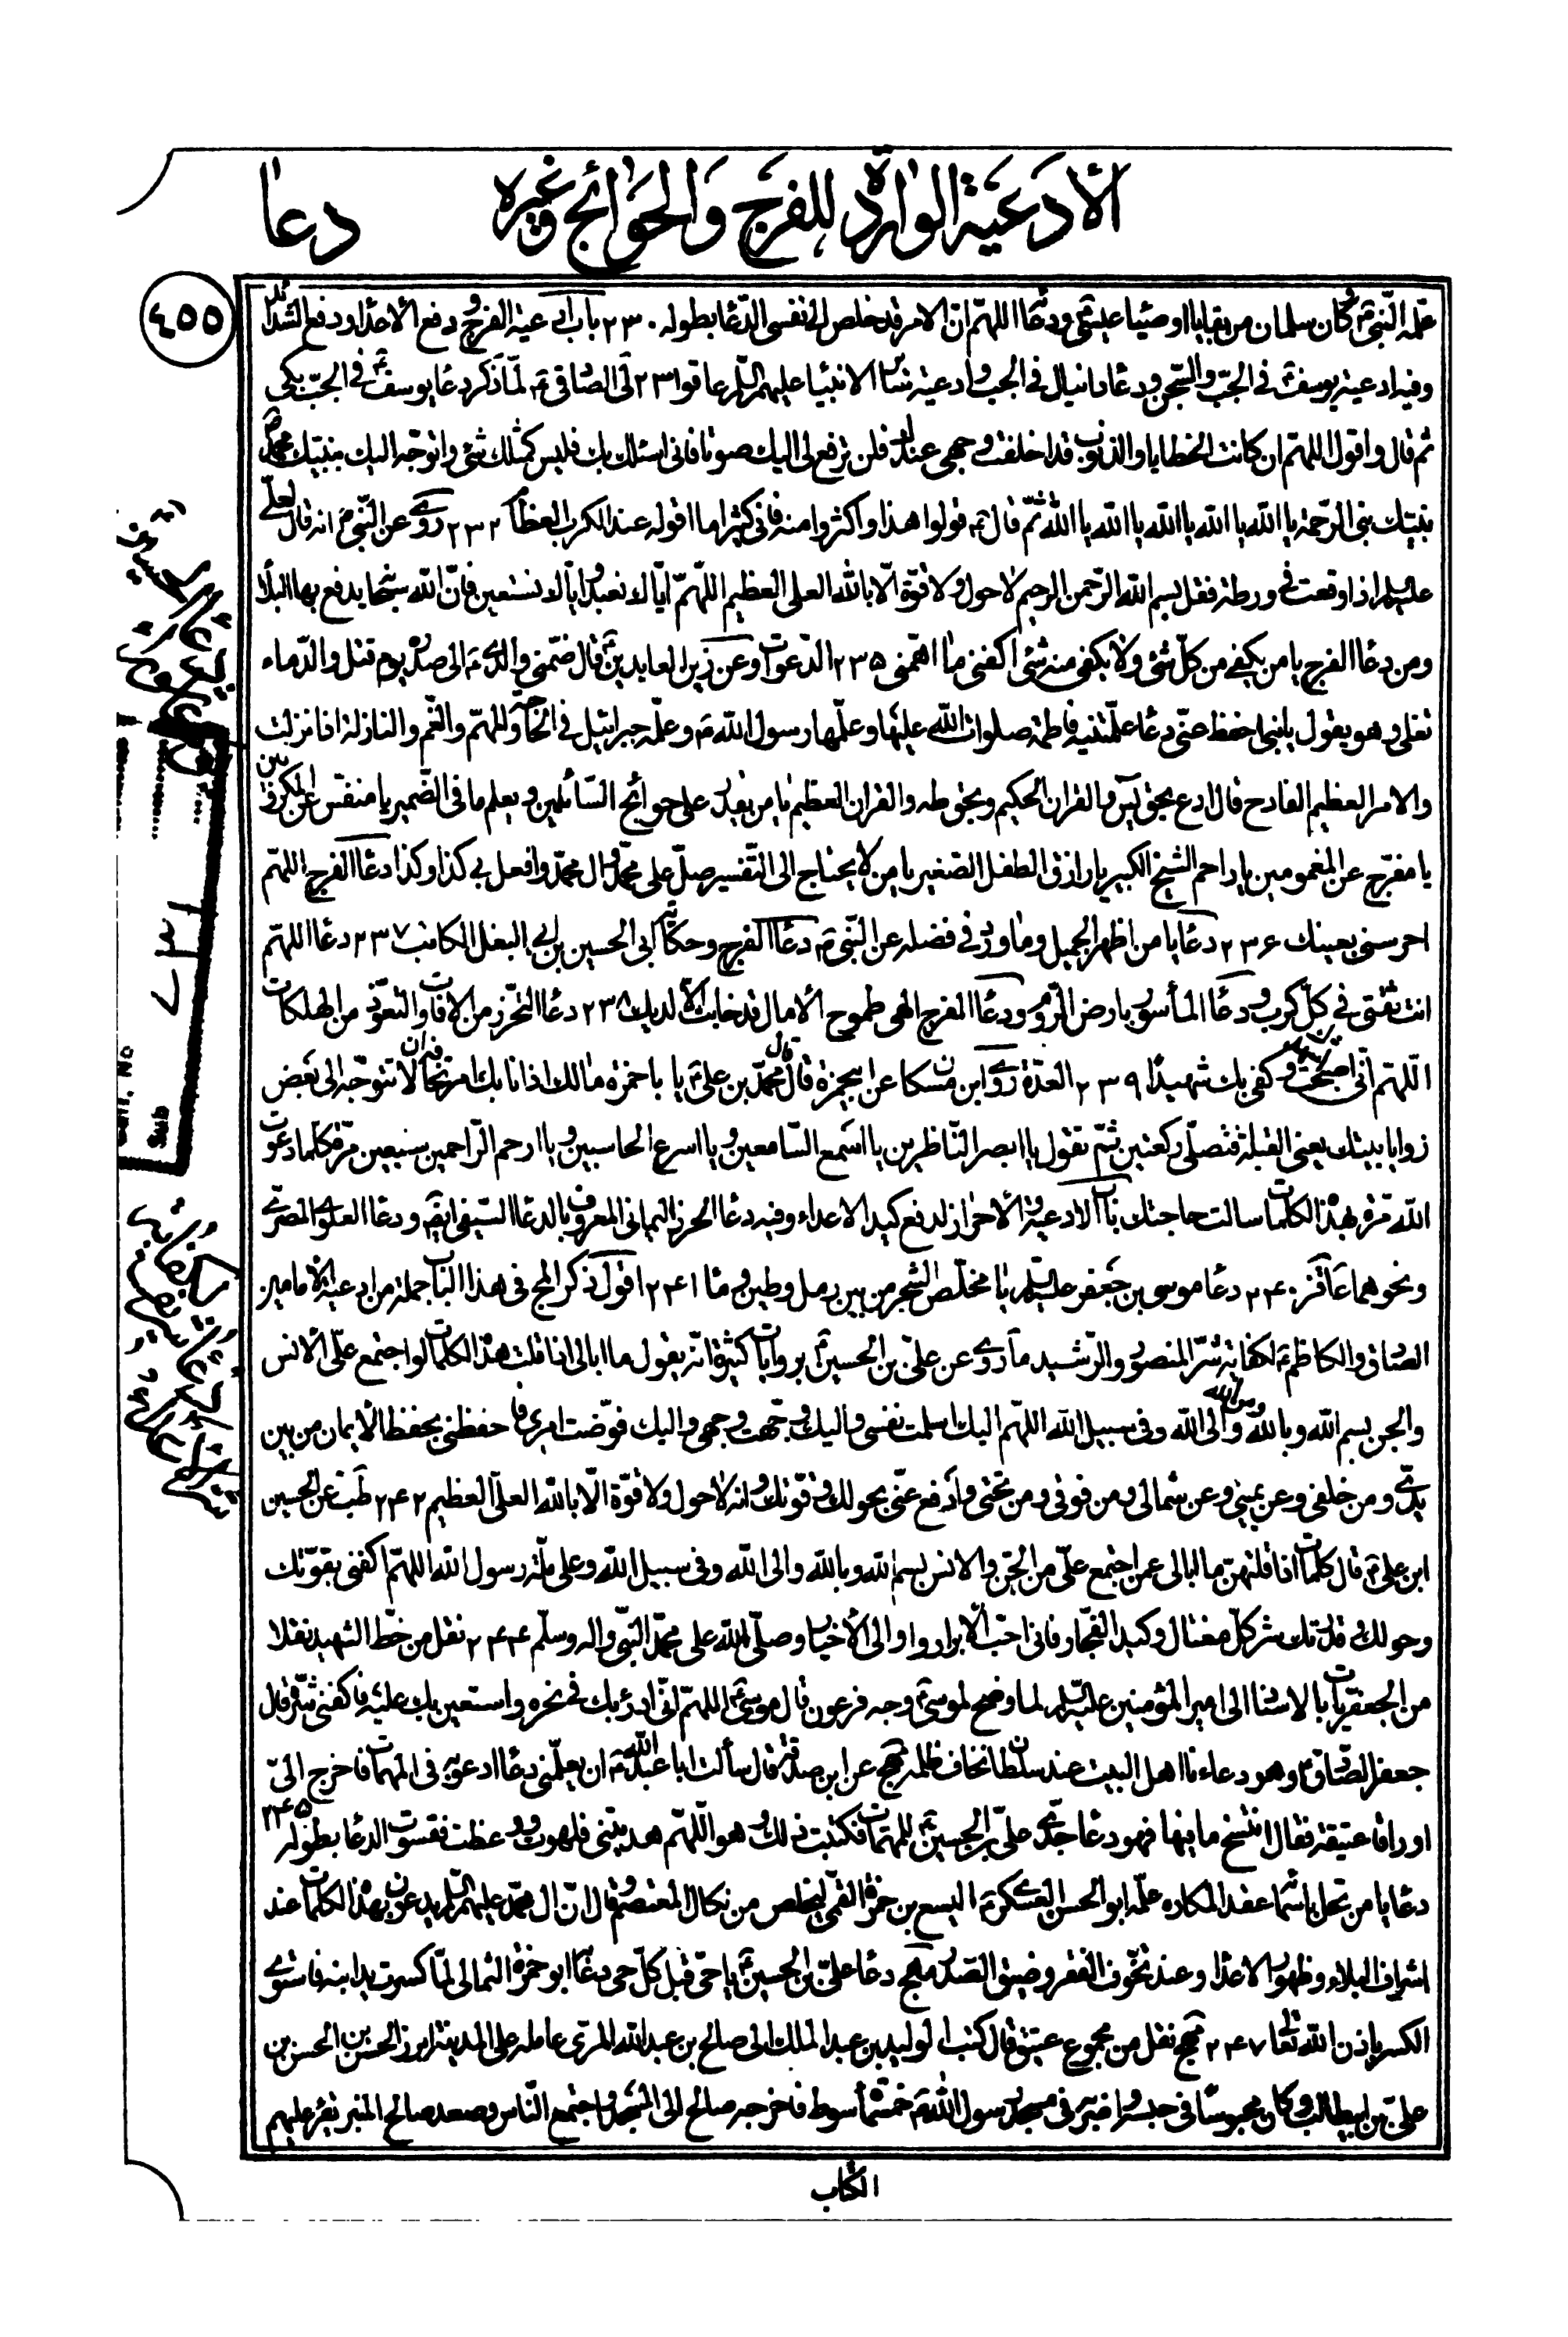 الأدعية الواردة للفرج والحوائج وغيره
دعا
٤٥٥
علّمه النّبيّ ص كان سلمان من بقايا اوصياء عيسى ع ودعا اللهمّ انّ الامر قد خلص الى نفسى الدّعا بطوله ٢٣٠ باب ادعية الفرج ودفع الأعداء ودفع الشدائد
وفيه ادعية يوسف ع في الجبّ والسّجن ودعا دانيال في الجب وادعية سائر الانبياء عليهم السّلم عا قو ٢٣١ لى الصّادق ع لمّا ذكر دعا يوسف ع في الجبّ بكى
ثم قال وانا اقول اللهمّ ان كانت الخطايا والذنوب قد اخلقت وجهى عندك فلن ترفع لى اليك صوتا فانى اسئلك بك فليس كمثلك شئ واتوجّه اليك بنبيّك محمّد ص
بنبيّك نبى الرّحمة يا الله يا الله يا الله يا الله يا الله ثمّ قال ع قولوا هذا واكثروا منه فانى كثيرا ما اقوله عند الكرب العظام ٢٣٢ روى عن النّبى ص انه قال لعلى
عليه السلم اذا وقعت في ورطة فقل بسم الله الرّحمن الرحيم لا حول ولا قوّة الّا بالله العلى العظيم اللهمّ ايّاك نعبد وايّاك نستعين فانّ الله سبحانه يدفع بها البلاء
ومن دعا الفرج يا من يكفى من كلّ شئ ولا يكفى منه شئ اكفنى ما اهمّنى ٢٣٥ الدّعوات وعن زين العابدين ع قال ضمّنى والدى ع الى صدره يوم قتل والدّماء
تغلى وهو يقول يا بنى احفظ عنّى دعا علّمتنيه فاطمة صلوات الله عليها وعلّمها رسول الله ص وعلّمه جبرائيل في الحاجة والمهمّ والغّم والنازلة اذا نزلت
والامر العظيم الفادح قال ادع بحق يس والقران الحكيم وبحق طه والقران العظيم يا من يقدر على حوائج السّائلين ويعلم ما فى الضّمير يا منفس عن المكروبين
يا مفرّج عن المغمومين يا راحم الشيخ الكبير يا رازق الطفل الصّغير يا من لا يحتاج الى التّفسير صلّ على محمّد وال محمّد وافعل بى كذا وكذا دعا الفرج اللهمّ
احرسنى بعينك ٢٣٦ دعا يا من اظهر الجميل وما ورد في فضله عن النّبى ص دعا الفرج وحكاية ابى الحسين بن ابى البغل الكاتب ٢٣٧ دعا اللهمّ
انت ثقتى في كلّ كرب ودعا المأسور بارض الرّوم ودعا الفرج الهى طموح الأمال قد خابت الّا لديك ٢٣٨ دعا التحّرز من الافات والتعوّذ من الهلكات
اللهمّ انّى اصبحت وكفى بك شهيدًا ٢٣٩ العدّة روى ابن مسكان عن ابيحمزة قال قال محمّد بن على ع يا با حمزة مالك اذا نابك امر تخافه ان لا تتوجّه الى بعض
زوايا بيتك يعنى القبلة فتصلّى ركعتين ثمّ تقول يا ابصر النّاظرين يا اسمع السّامعين ويا اسرع الحاسبين ويا ارحم الرّاحمين سبعين مرّة كلّما دعوت
الله مرّة بهذه الكلمات سالت حاجتك باب الادعية والأحراز لدفع كيد الاعداء وفيه دعا الحرز اليمانى المعروف بالدعا السّيفى ايضا ودعا العلوى المصرّى
ونحوهما عا قز ٢٤٠ دعا موسى بن جعفر عليه السلم يا مخلّص الشجر من بين رمل وطين وماء ٢٤١ اقول ذكر المج فى هذا الباب جملة من ادعية الامامين
الصّادق والكاظم ع لكفاية شرّ المنصور والرّشيد ما روى عن علىّ بن الحسين ع بروايات كثيرة انّه يقول ما ابالى اذا قلت هذه الكلمات لو اجتمع علىّ الانس
والجن بسم الله وبالله ومن الله والى الله وفى سبيل الله اللهمّ اليك اسلمت نفسى واليك وجّهت وجهى واليك فوّضت امرى فاحفظنى بحفظ الأيمان من بين
يدىّ ومن خلفى وعن يمينى وعن شمالى ومن فوقى ومن تحتى وادفع عنّى بحولك وقوّتك وانه لا حول ولا قوّة الّا بالله العلىّ العظيم ٢٤٢ طب عن الحسين
ابن على ع قال كلمات اذا قلتهنّ ما ابالى عمن اجتمع علىّ من الجّن والانس بسم الله وبالله والى الله وفى سبيل الله وعلى ملّة رسول الله اللهمّ اكفنى بقوّتك
وحولك وقدرتك شر كلّ مغتال وكيد الفجّار فانى احبّ الأبرار واوالى الأخيار وصلّى الله على محمّد النّبى واله وسلّم ٢٤٤ نقل من خطّ الشهيد نقلا
من الجعفريات بالاسناد الى امير المؤمنين عليه السلم لما وضح لموسى ع وجه فرعون قال موسى ع اللهمّ انّى ادرئ بك فى نحره واستعين بك عليه فاكفنى شرّه قال
جعفر الصّادق ع وهو دعاءنا اهل البيت عند سلطان نخاف ظلمه مهج عن ابن صدقة قال سألت ابا عبد الله ع ان يعلّمنى دعا ادعو به فى المهمات فاخرج الىّ
اوراقا عتيقة فقال انتسخ ما فيها فهو دعا جدّى علىّ بن الحسين ع للمهمات فكتبت ذلك وهو اللّهمّ هديتنى فلهوت ووعظت فقسوت الدعا بطوله ٢٤٥
دعا يا من تحل باسمائه عقد المكاره علّمه ابو الحسن العسكرى ع اليسع بن حمزة القمّى ليخلص من نكال المعتصم وقال انّ ال محمّد عليهم السّلم يدعون بهذه الكلمات عند
اشراف البلاء وظهور الاعداء وعند تخّوف الفقر وضيق الصّدر مهج دعا علىّ بن الحسين ع يا حىّ قبل كلّ حى دعا ابو حمزة الثمالى لمّا كسرت يد ابنه فاستوى
الكسر باذن الله تعالى ٢٤٧ مهج نقل من مجموع عتيق قال كتب الوليد بن عبد الملك الى صالح بن عبد الله المرّى عامله على المدينة ابرز الحسن بن الحسن بن
علىّ بن ابيطالب وكان محبوسًا فى حبسه واضربه فى مسجد رسول الله ص خمسمأة سوط فاخرجه صالح الى المسجد واجتمع النّاس وصعد صالح المنبر يقرء عليهم
الكتاب